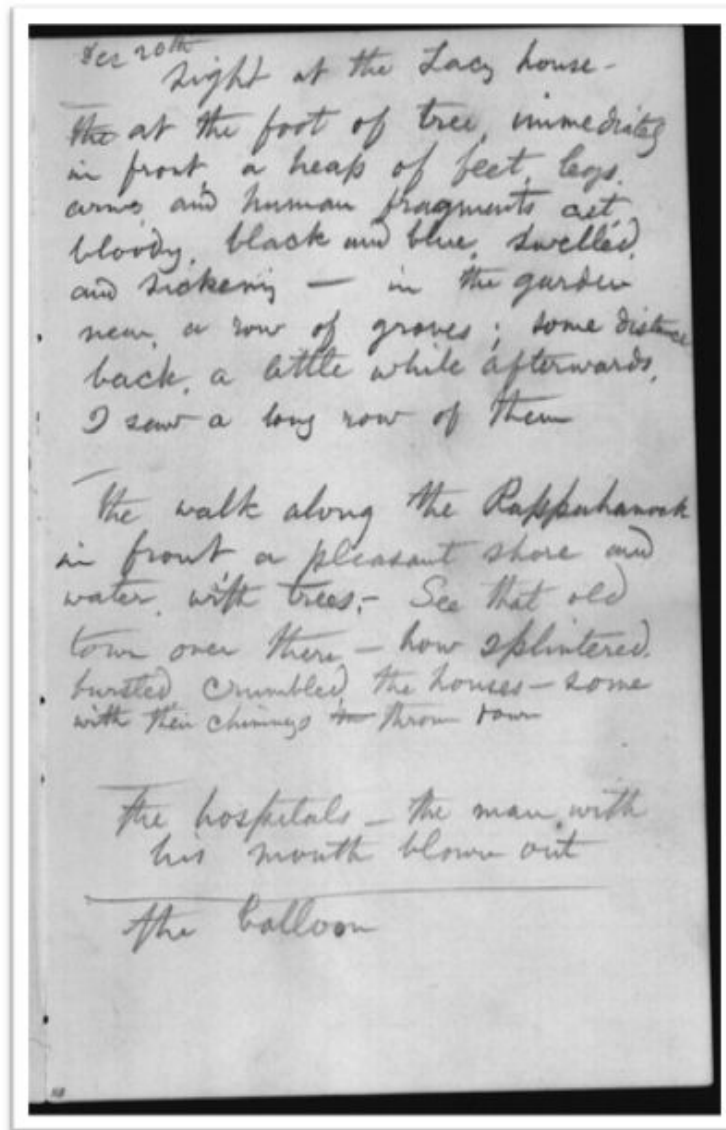 Dec 20th
Sight at the Lacy house -
the at the foot of tree, immediately
in front, a heap of feet, legs,
arms, and human fragments, cut,
bloody, black and blue, swelled
and sickening — in the garden
near, a row of graves; some distance
back, a little while afterwards,
I saw a long row of them
The walk along the Rappahanock
in front, a pleasant shore and
water, with trees, - See that old
town over there – how splintered,
bursted, crumbled, the houses – some
with their chimneys thrown down
The hospitals – the man with
his mouth blown out
The balloon